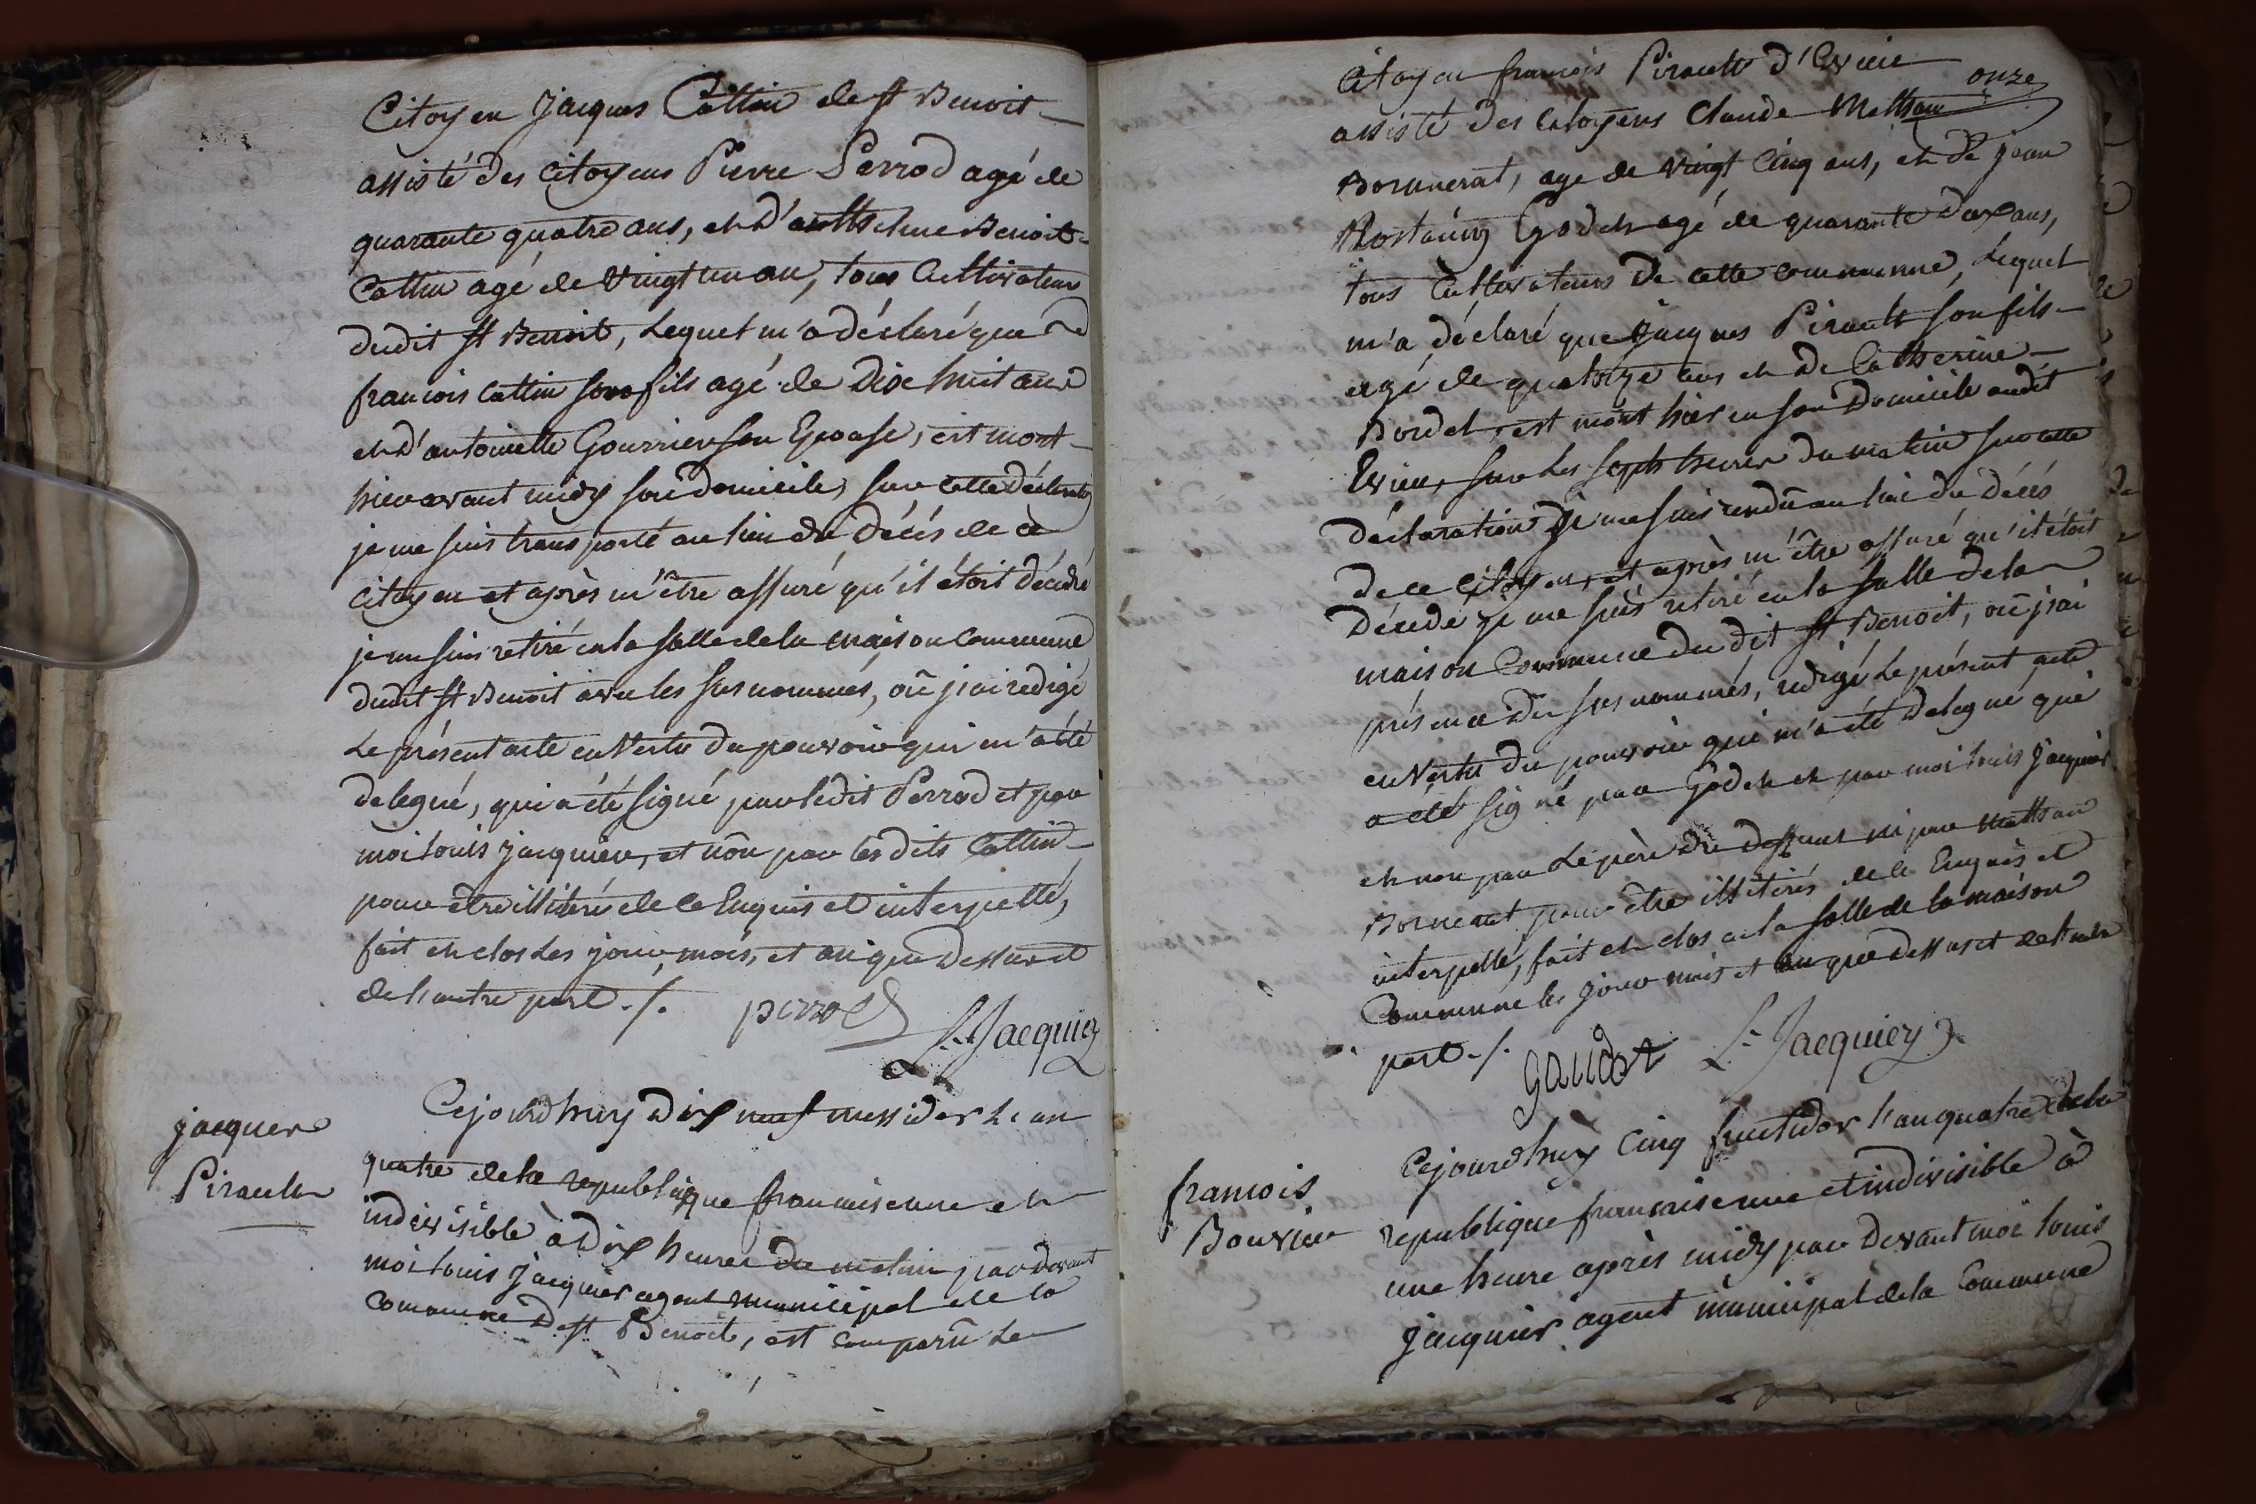 Citoyen Jacques Cattin de st Benoit
assisté des citoyens Pierre Perrod agé de
quarante quatre ans, et d'anthelme Benoit
Cattin agé de vingt un an, tous Cultivateurs
dudit st Benoit, Lequel m'a déclaré que
francois Cattin son fils agé de Dix huit ans
et d'antoinette Gourrier son Epouse, est mort
hier avant midy son domicile, sur cette déclaration
je me suis transporté au lieu du décés de ce
citoyen et après m'être assuré qu'il étoit décédé
je me suis retiré en la salle de la maison commune
dudit st Benoit avec les sus nommés, où j'ai redigé
Le présent acte en Vertu du pouvoir qui m'a été
delegué, qui a été signé par ledit Perrod et par
moi Louis jacquier, et non par les dits Cattin
pour être illiteré de ce Enquis et interpellé,
fait et clos Les jour, mois, et an que Dessus et
de l'autre part ./. perrod
L. Jacquier
jacques
Pirault
Cejourd'huy Dix neuf messidor L'an
quatre de la republique francaisenne et
indivisible à Dix heures du matin par devant
moi Louis Jacquier agent municipal de la
commune De st Benoit, est comparu Le
onze
Citoyen francois Pirault d'Evieu
assisté des Citoyens Claude Mathan
Bornerat, age de vingt cinq ans, et de jean
Rostaing Godet agé de quarante deux ans,
tous Cultivateurs de cette commune, Lequel
m'a déclaré que Jacques Pirault son fils
agé de quatorze ans et de Catherine
Bordel, est mort hier en son Domicile audit
Evieu, sur Les sept heures du matin sur cette
declaration je me suis rendu au lieu du décés
de ce Citoyen, et après m'être assuré qu'il étoit
Décedé je me suis retiré en la salle de la
maison Commune du dit st Benoit, où j'ai
présence des sus nommés, redigé Le présent acte
en Vertu du pouvoir qui m'a été delegué qui
a été signé par Godet et par moi Louis Jacquier
et non par Le père du deffunt ni par Mathan
Bornerat pour être illitérés de ce Enquis et
interpellé, fait et clos en la salle de la maison
Commune les jour mois et an que dessus et de l'autre
part ./. gaudet L. Jacquier
francois
Bouvier
Cejourd'huy Cinq fructidor l'an quatre de la
republique francaisenne et indivisible à
une heure après midy par Devant moi Louis
Jacquier agent municipal de la Commune